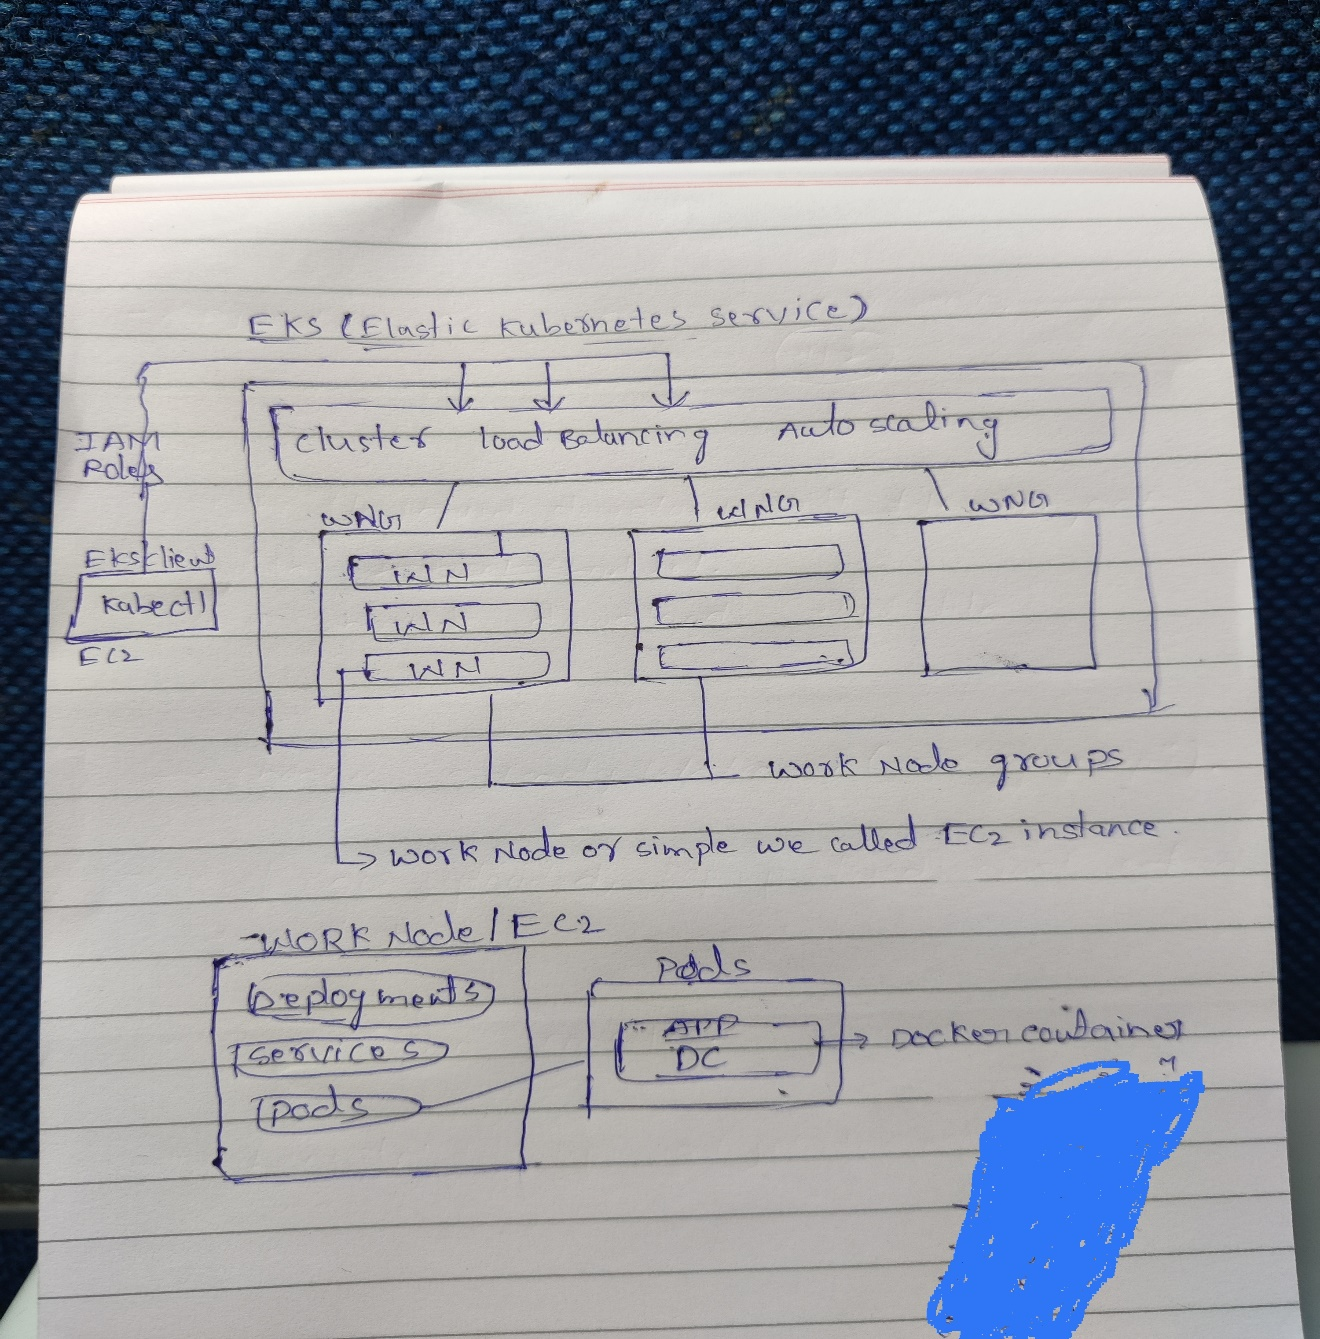 EKS (Elastic Kubernetes Service)
Cluster load Balancing Auto scaling
IAM
Roles
WNG WNG WNG
EKS client
Kabectl
EC2
WN
WN
WN
Work Node groups
Work Node or simple we called EC2 instance.
WORK Node / EC2
Deployments
Services
Pods
Pods
APP
DC
Docker container